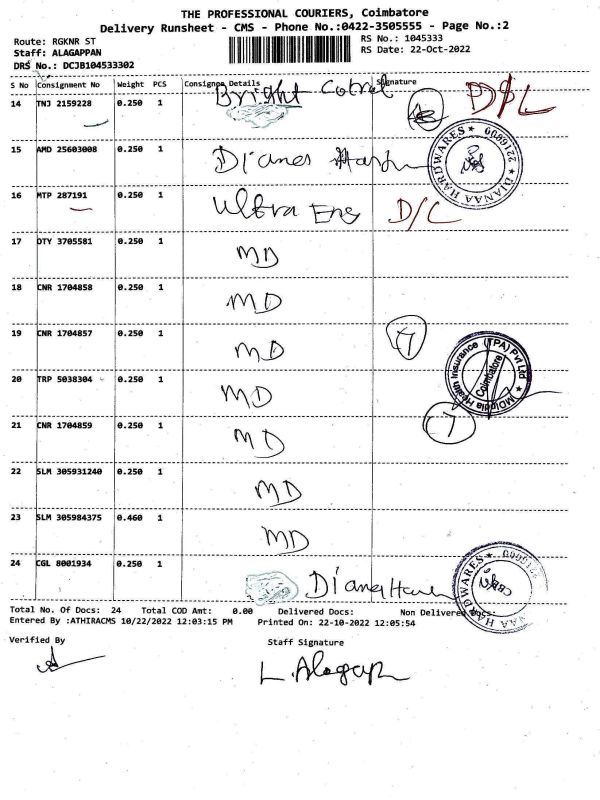 THE PROFESSIONAL COURIERS, Coimbatore
Delivery Runsheet - CMS - Phone No.:0422-3505555 - Page No.:2
Route: RGKNR ST
RS No.: 1045333
Staff: ALAGAPPAN
RS Date: 22-Oct-2022
DRS No.: DCJB104533302
S No Consignment No Weight PCS Consignee Details Signature
14 TNJ 2159228 0.250 1 Bright D/L
15 AMD 25603008 0.250 1
DIANAA HARDWARES 2216009
16 MTP 287191 0.250 1 Ultra Eng D/L
17 DTY 3705581 0.250 1 MD
18 CNR 1704858 0.250 1 MD
19 CNR 1704857 0.250 1 MD 7
MDIndia Health Insurance (TPA) Pvt Ltd Coimbatore
20 TRP 5038304 0.250 1 MD
21 CNR 1704859 0.250 1 MD 7
22 SLM 305931240 0.250 1 MD
23 SLM 305984375 0.460 1 MD
24 CGL 8001934 0.250 1 Diana
Total No. Of Docs: 24 Total COD Amt: 0.00 Delivered Docs: Non Delivered Docs:
Entered By :ATHIRACMS 10/22/2022 12:03:15 PM Printed On: 22-10-2022 12:05:54
Verified By Staff Signature
L. Alagap